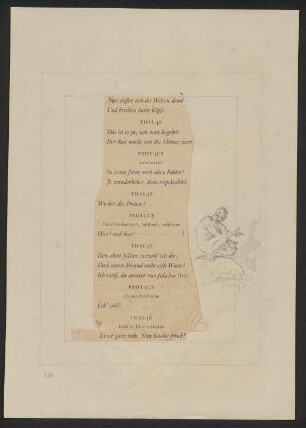 Nun stoßen sich die Weisen dran
Und brechen harte Köpfe.
THALES
Das ist es ja, was man begehrt:
Der Rost macht erst die Münze wert.
PROTEUS
unbemerkt
So etwas freut mich alten Fabler!
Je wunderlicher, desto respektabler.
THALES
Wo bist du, Proteus?
PROTEUS
bauchrednerisch, bald nah, bald fern
Hier! und hier!
THALES
Den alten Scherz verzeih' ich dir;
Doch einem Freund nicht eitle Worte!
Ich weiß, du sprichst vom falschen Orte.
PROTEUS
als aus der Ferne
Leb' wohl!
THALES
leise zu Homunculus
Er ist ganz nah. Nun leuchte frisch!